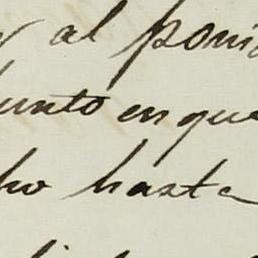 y al poni
punto en que
ho hasta